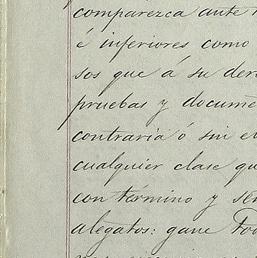 comparezca ante
é inferiores como
sos que á su der
pruebas y docume
contraria ó sin e
cualquier clase qu
con término y se
alegatos: gane